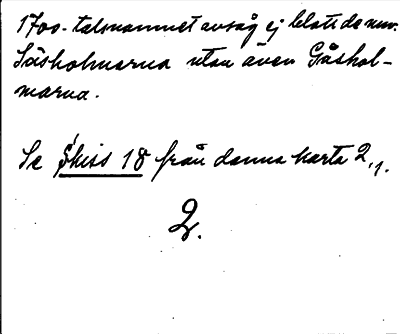 1700-talsnamnet avsåg ej blott de nuv.
Säsholmarna utan även Gåshol-
marna.
Se skiss 18 från denna karta 2.1.
2.